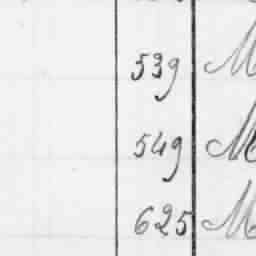 539 M
549 M
625 M